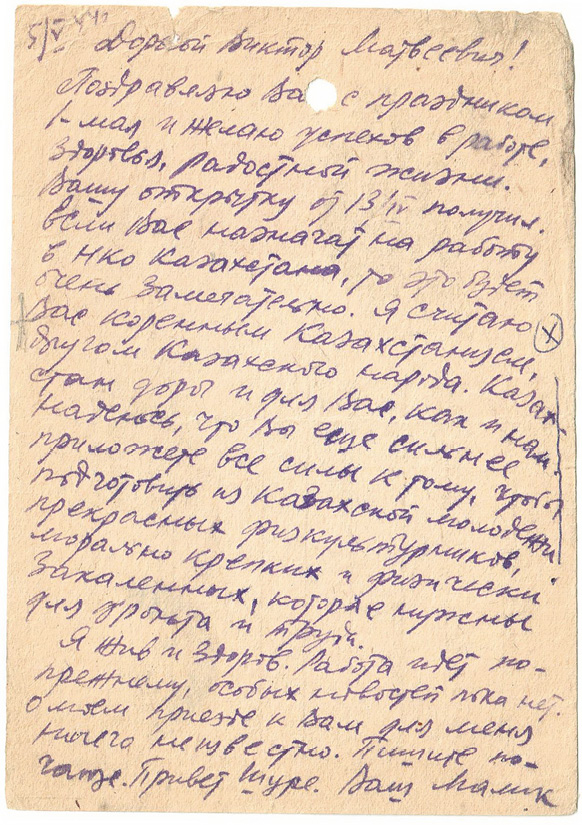 5/V
Дорогой Виктор Матвеевич!
Поздравляю Вас с праздником
1-мая и желаю успехов в работе,
здоровья, радостной жизни.
Вашу открытку от 13/IV получил.
Если Вас назначат на работу
в НКО Казахстана, то это будет
очень замечательно. Я считаю
Вас коренным Казахстанцем,
другом Казахского народа. Казах-
стан дорог и для Вас, как и нам.
Надеюсь, что Вы еще сильнее
приложете все силы к тому, чтобы
подготовить из Казахской молодежи
прекрасных физкультурников,
морально крепких и физически
закаленных, которые нужны
для фронта и труда.
Я жив и здоров. Работа идет по-
прежнему, особых новостей пока нет.
О моем приезде к Вам для меня
ничего неизвестно. Пишите по-
чаще. Привет Шуре. Ваш Малик